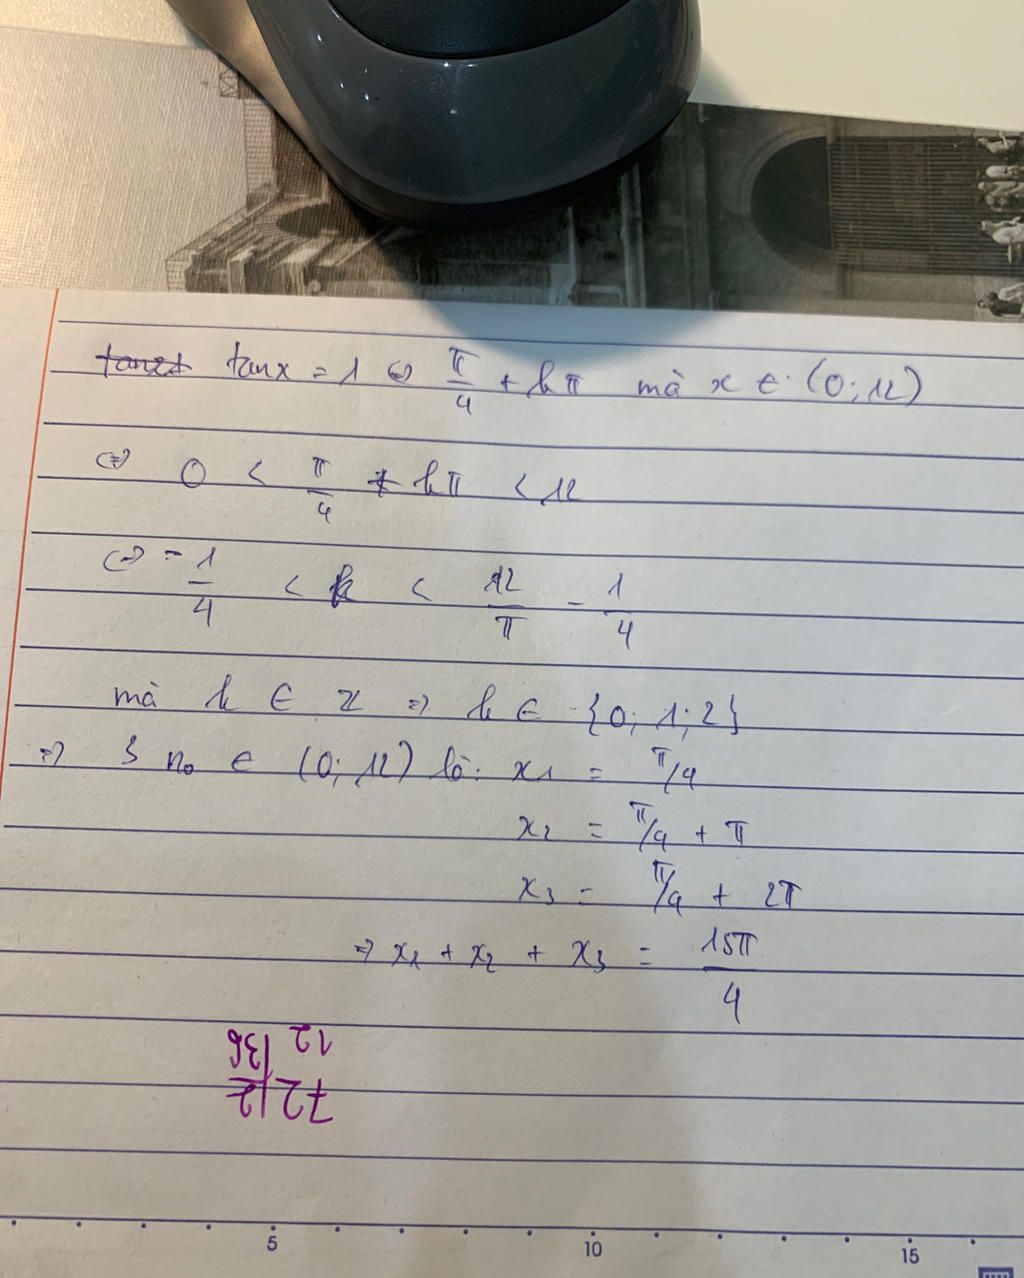 tanx = 1 ⇔ π/4 + kπ mà x ∈ (0; 12)
⇔ 0 < π/4 + kπ < 12
⇔ -1/4 < k < 12/π - 1/4
mà k ∈ Z ⇒ k ∈ {0; 1; 2}
⇒ 3 no ∈ (0; 12) là: x1 = π/4
x2 = π/4 + π
x3 = π/4 + 2π
⇒ x1 + x2 + x3 = 15π/4
72 | 2
12 | 36
5 10 15